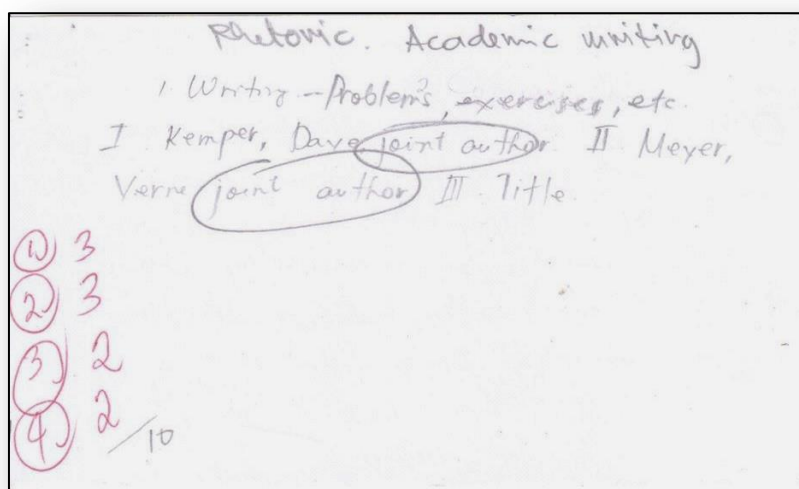 Rhetoric. Academic writing
1. Writing – Problems, exercises, etc.
I Kemper, Dave joint author II Meyer,
Verne joint author III Title.
① 3
② 3
③ 2
④ 2
/10